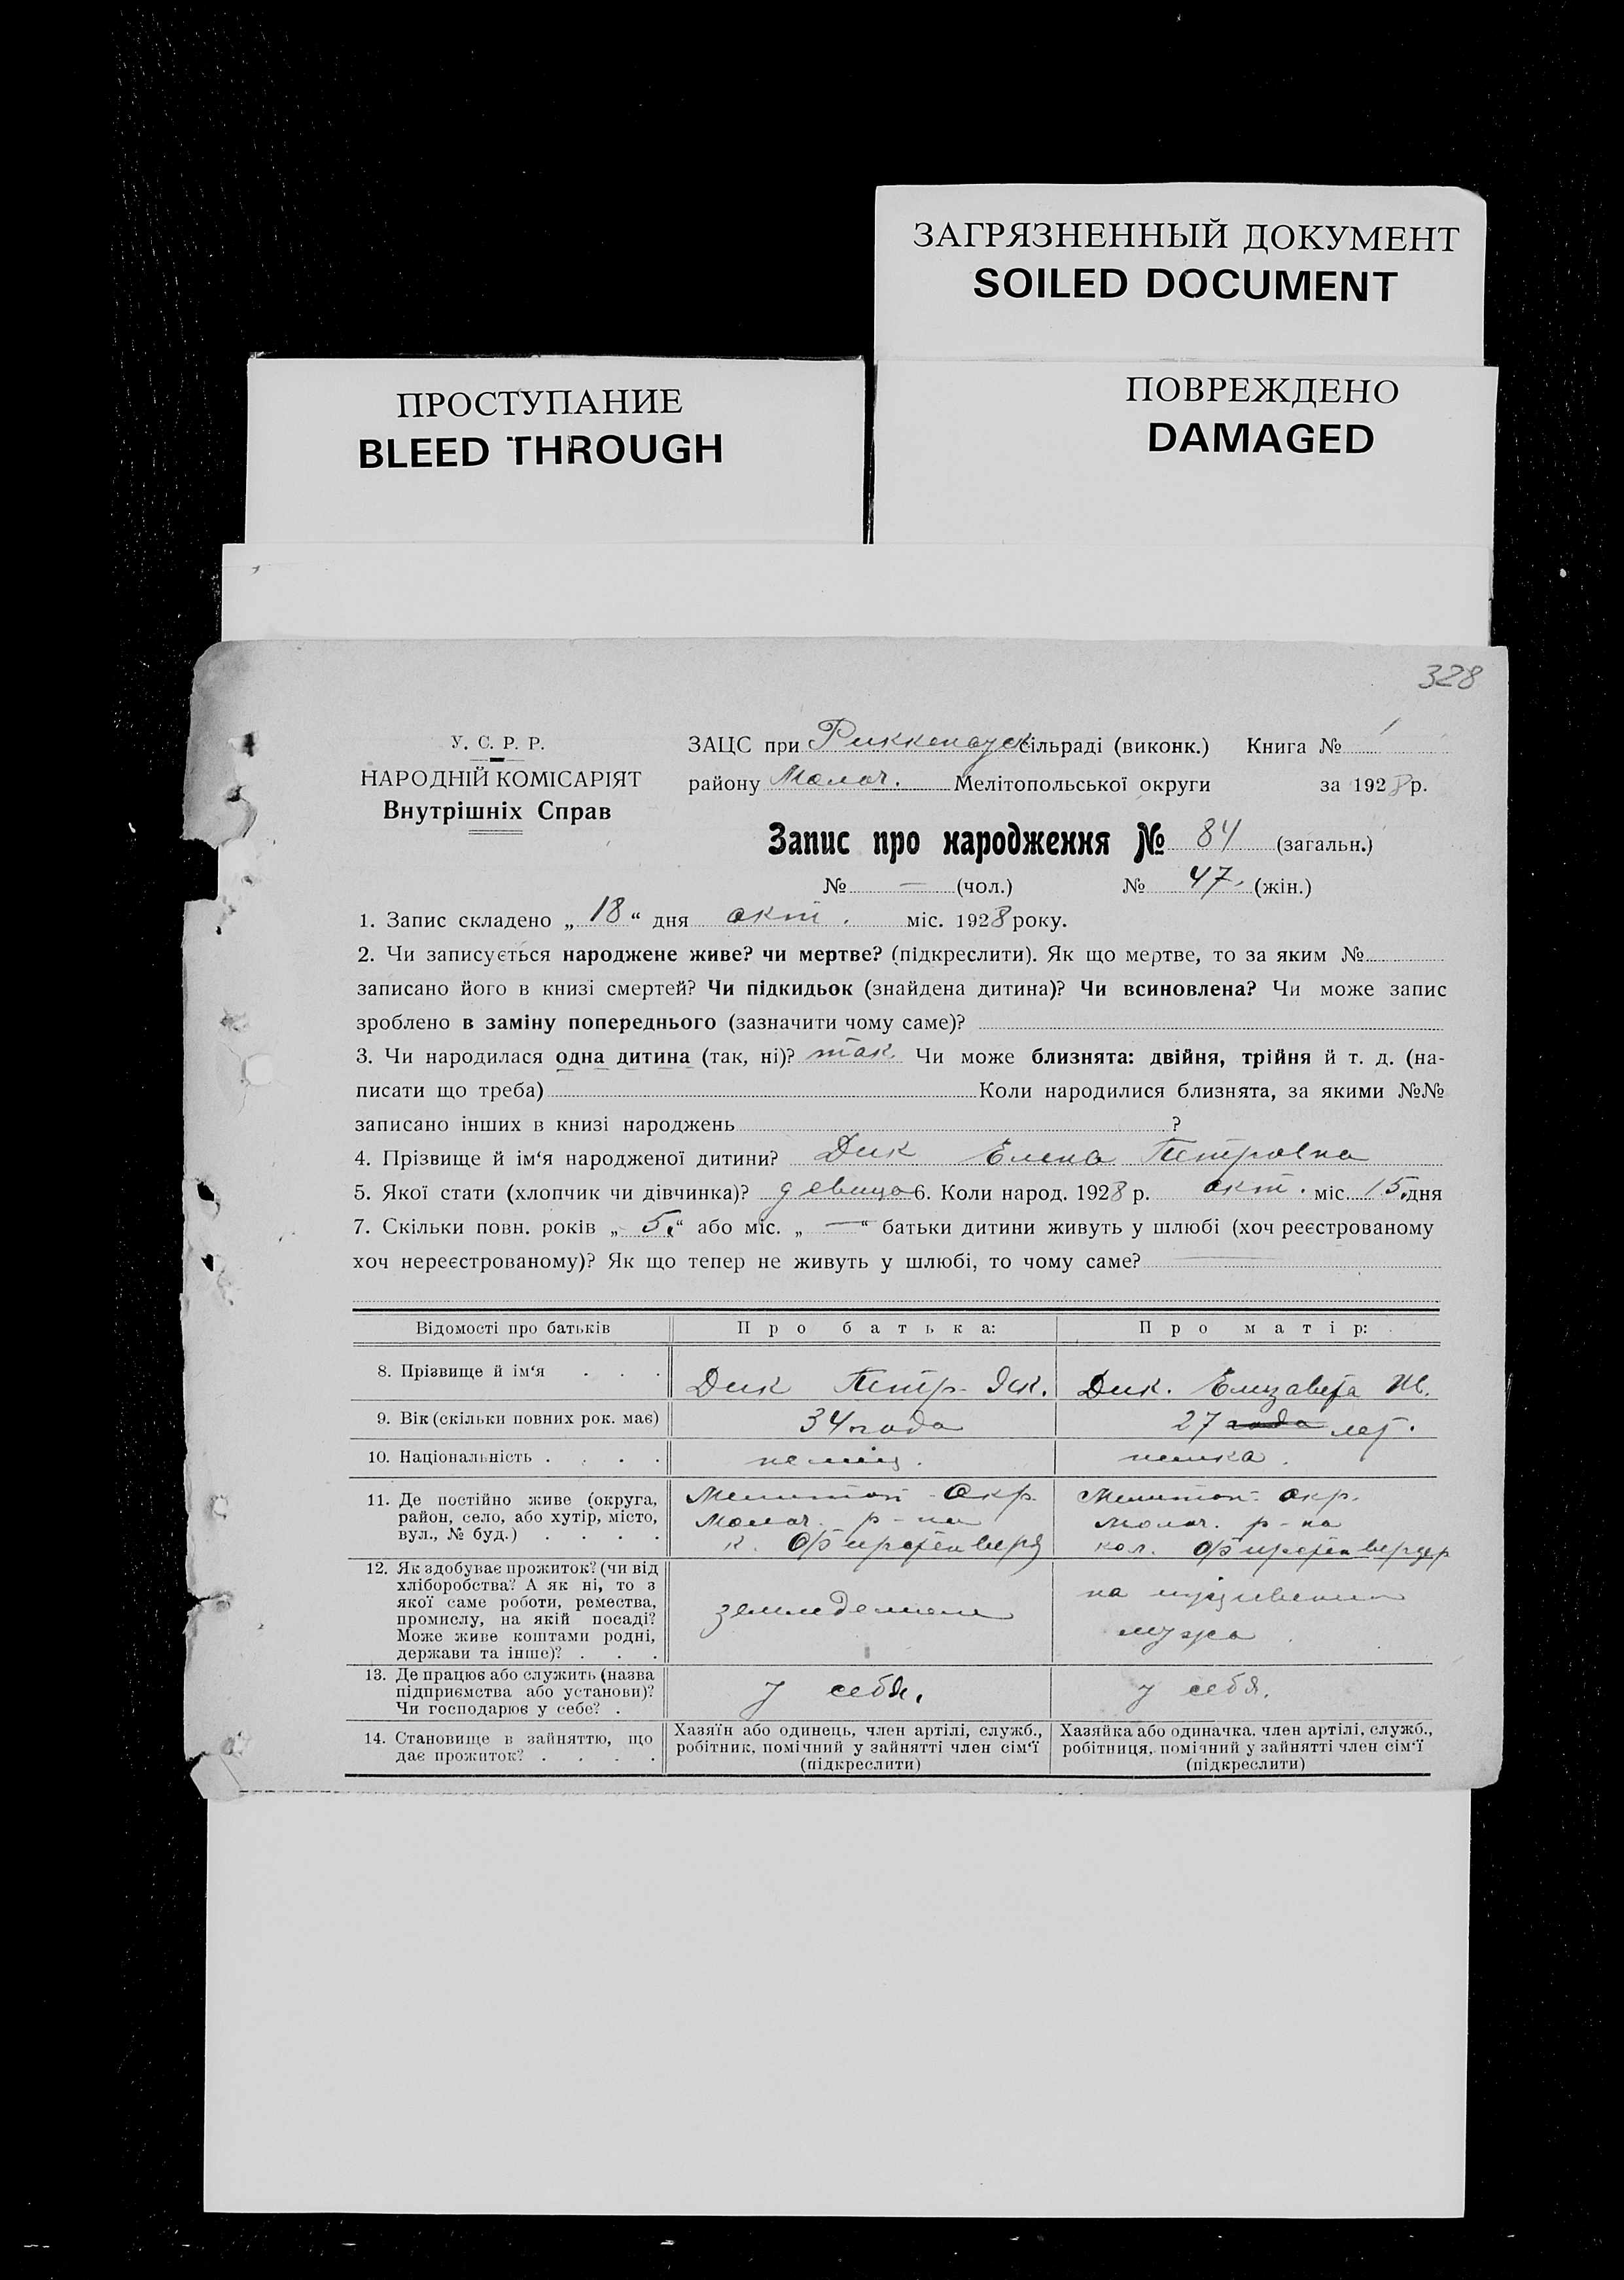 ЗАГРЯЗНЕННЫЙ ДОКУМЕНТ
SOILED DOCUMENT
ПРОСТУПАНИЕ
BLEED THROUGH
ПОВРЕЖДЕНО
DAMAGED
328
У. С. Р. Р.
НАРОДНІЙ КОМІСАРІЯТ
Внутрішніх Справ
ЗАЦС при Риккенауск сільраді (виконк.) Книга № 1
району Молоч. Мелітопольської округи за 1928 р.
Запис про народження № 84 (загальн.)
№ — (чол.) № 47. (жін.)
1. Запис складено „ 18 “ дня окт. міс. 1928 року.
2. Чи записується народжене живе? чи мертве? (підкреслити). Як що мертве, то за яким №
записано його в книзі смертей? Чи підкидьок (знайдена дитина)? Чи всиновлена? Чи може запис
зроблено в заміну попереднього (зазначити чому саме)?
3. Чи народилася одна дитина (так, ні)? так. Чи може близнята: двійня, трійня й т. д. (на-
писати що треба) Коли народилися близнята, за якими №№
записано інших в книзі народжень ?
4. Прізвище й ім‘я народженої дитини? Дик Елена Петровна
5. Якої стати (хлопчик чи дівчинка)? девица 6. Коли народ. 1928 р. окт. міс. 15. дня
7. Скільки повн. років „ 5. “ або міс. „ — “ батьки дитини живуть у шлюбі (хоч реєстрованому
хоч нереєстрованому)? Як що тепер не живуть у шлюбі, то чому саме? —
Відомості про батьків
Про батька:
Про матір:
8. Прізвище й ім‘я . . .
Дик Петр Як.
Дик. Елизавета
9. Вік (скільки повних рок. має)
34 года
27 года лет.
10. Національність . . . .
немец.
немка.
11. Де постійно живе (округа,
район, село, або хутір, місто,
вул., № буд.) . . . .
Мелитоп. Окр.
Молоч. р-на
к.
Мелитоп. окр.
Молоч. р-на
кол.
12. Як здобуває прожиток? (чи від
хліборобства? А як ні, то з
якої саме роботи, ремества,
промислу, на якій посаді?
Може живе коштами родні,
держави та інше)? . . .
земледелием
на иждивении
мужа
13. Де працює або служить (назва
підприємства або установи)?
Чи господарює у себе? .
у себя.
у себя.
14. Становище в зайняттю, що
дає прожиток? . . . .
Хазяїн або одинець, член артілі, служб.,
робітник, помічний у зайнятті член сім‘ї
(підкреслити)
Хазяйка або одиначка, член артілі, служб.,
робітниця, помічний у зайнятті член сім‘ї
(підкреслити)